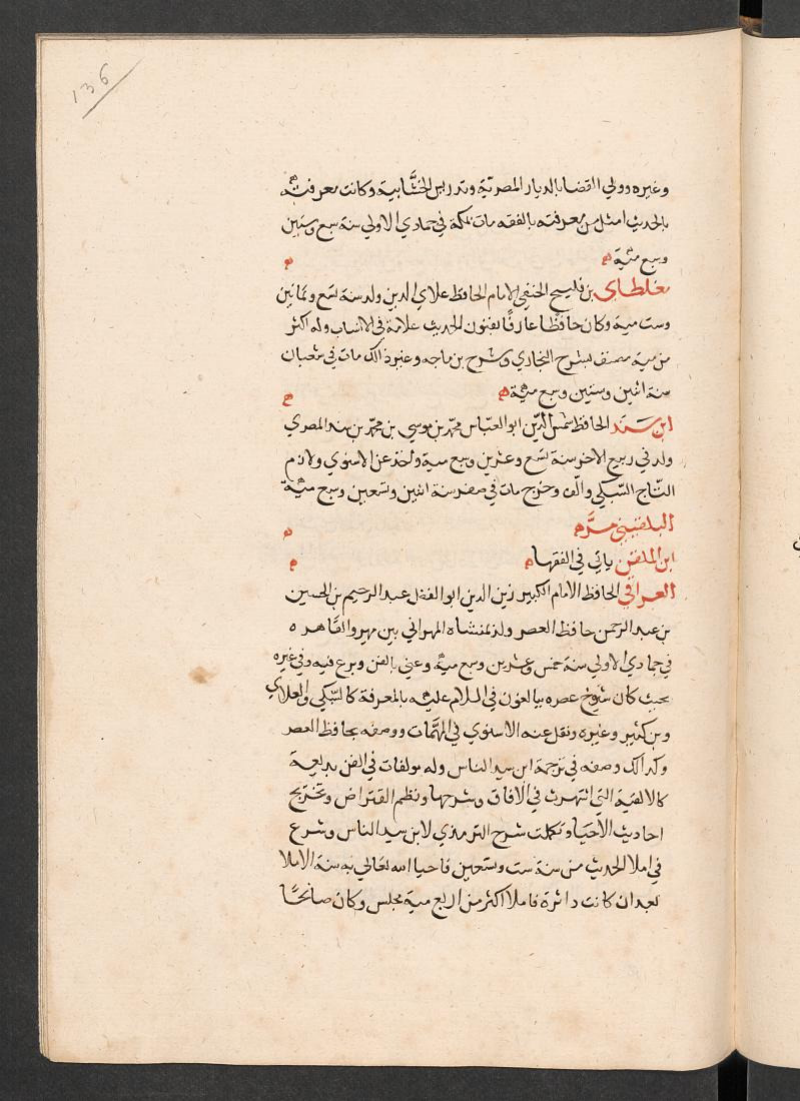 136
وغيره وولي القضا بالديار المصرية وتدريس الخشابية وكانت معرفته
بالحديث امثل من معرفته بالفقه مات بمكة في جمادي الاولي سنة سبع وستين
وسبع مئية
مغلطاى بن قليج الحنفي الامام الحافظ علاي الدين ولد سنة تسع وثمانين
وست مية وكان حافظا عارفا بفنون الحديث علامة في الانساب وله اكثر
من مية مصنف كشرح البخاري وشرح بن ماجه وغير ذالك مات في شعبان
سنة اثنين وستين وسبع مئية
ابن سَنَد الحافظ شمس الدين ابو العباس محمد بن موسي بن محمد بن سند المصري
ولد في ربيع الاخر سنة تسع وعشرين وسبع مية واخذ عن الاسنوي ولازم
التاج السّبكي والف وخرج مات في صفر سنة اثنين وتسعين وسبع مئية
البلقيني مرَّ
ابن الملقن ياتي في الفقها
العراقي الحافظ الامام الكبير زين الدين ابو الفضل عبد الرحيم بن الحسين
بن عبد الرحمن حافظ العصر ولد بمنشاه المهراني بين مصر والقاهره
في جمادي الاولي سنة خمس وعشرين وسبع مية وعني بالفن وبرع فيه وفي غيره
بحيث كان شيوخ عصره يبالغون في الثنا عليه بالمعرفة كالسبكي والعلاي
وبن كثير وغيره ونقل عنه الاسنوي في المهّمات ووصفه بحافظ العصر
وكدالك وصفه في ترجمة ابن سيد الناس وله مولفات في الفن بديعة
كالالفية التي اشتهرت في الافاق وشرحها ونظم الاقتراض وتخريج
احاديث الاحيا وتكملت شرح الترمذي لابن سيد الناس وشرع
في املا الحديث من سنة ست وتسعين فاحيا الله تعالي به سنة الاملا
بعد ان كانت داثرة فاملا اكثر من اربع مية مجلس وكان صالحًا